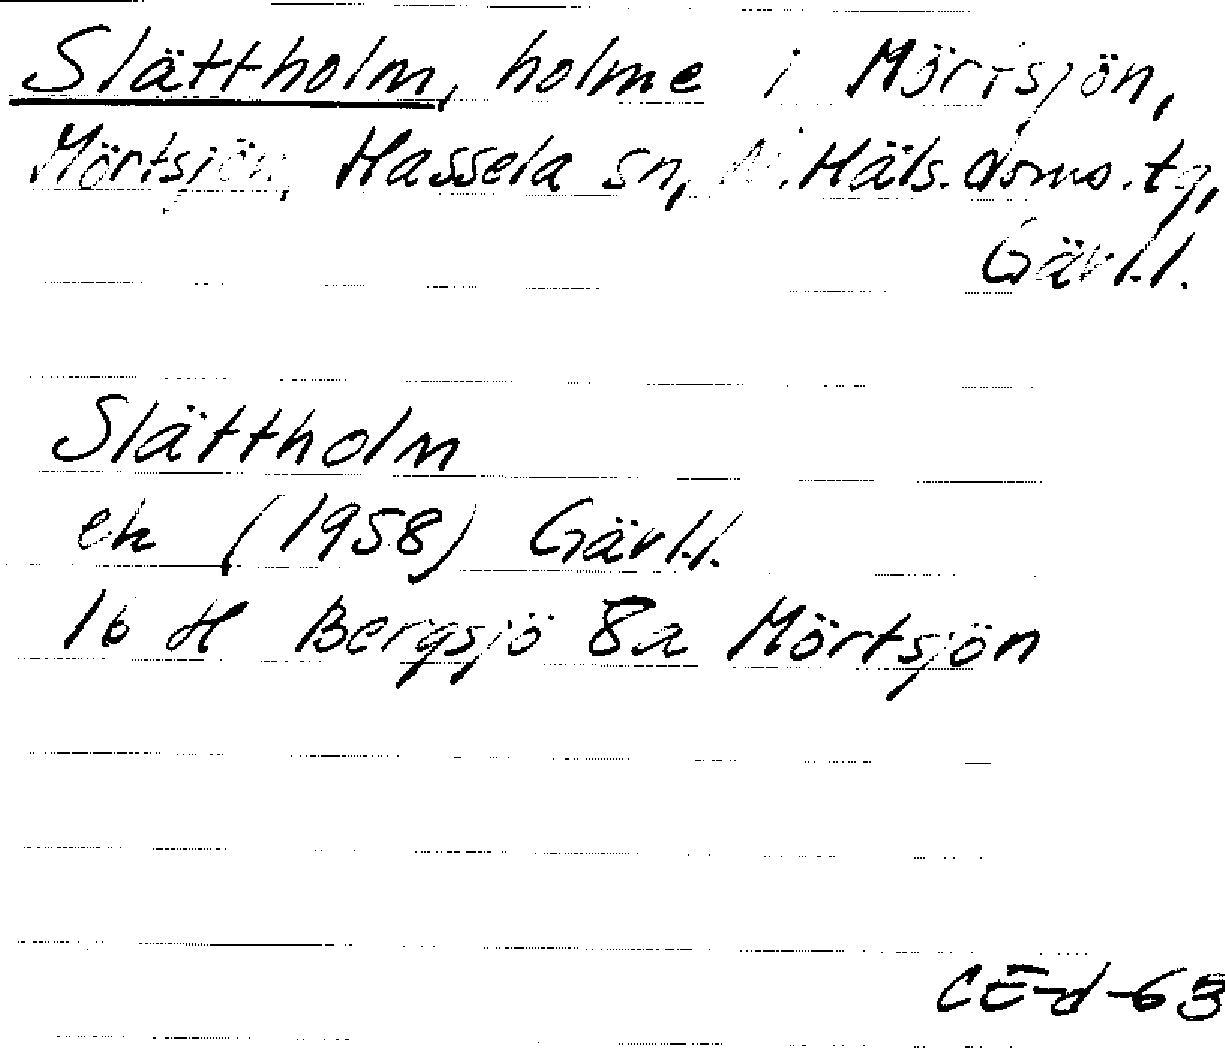 Slättholm, holme i Mörtsjön,
Mörtsjön, Hassela sn, N. Häls. doms. tg,
Gävl.l.
Slättholm
ek (1958) Gävl.l.
16 H Bergsjö 8a Mörtsjön